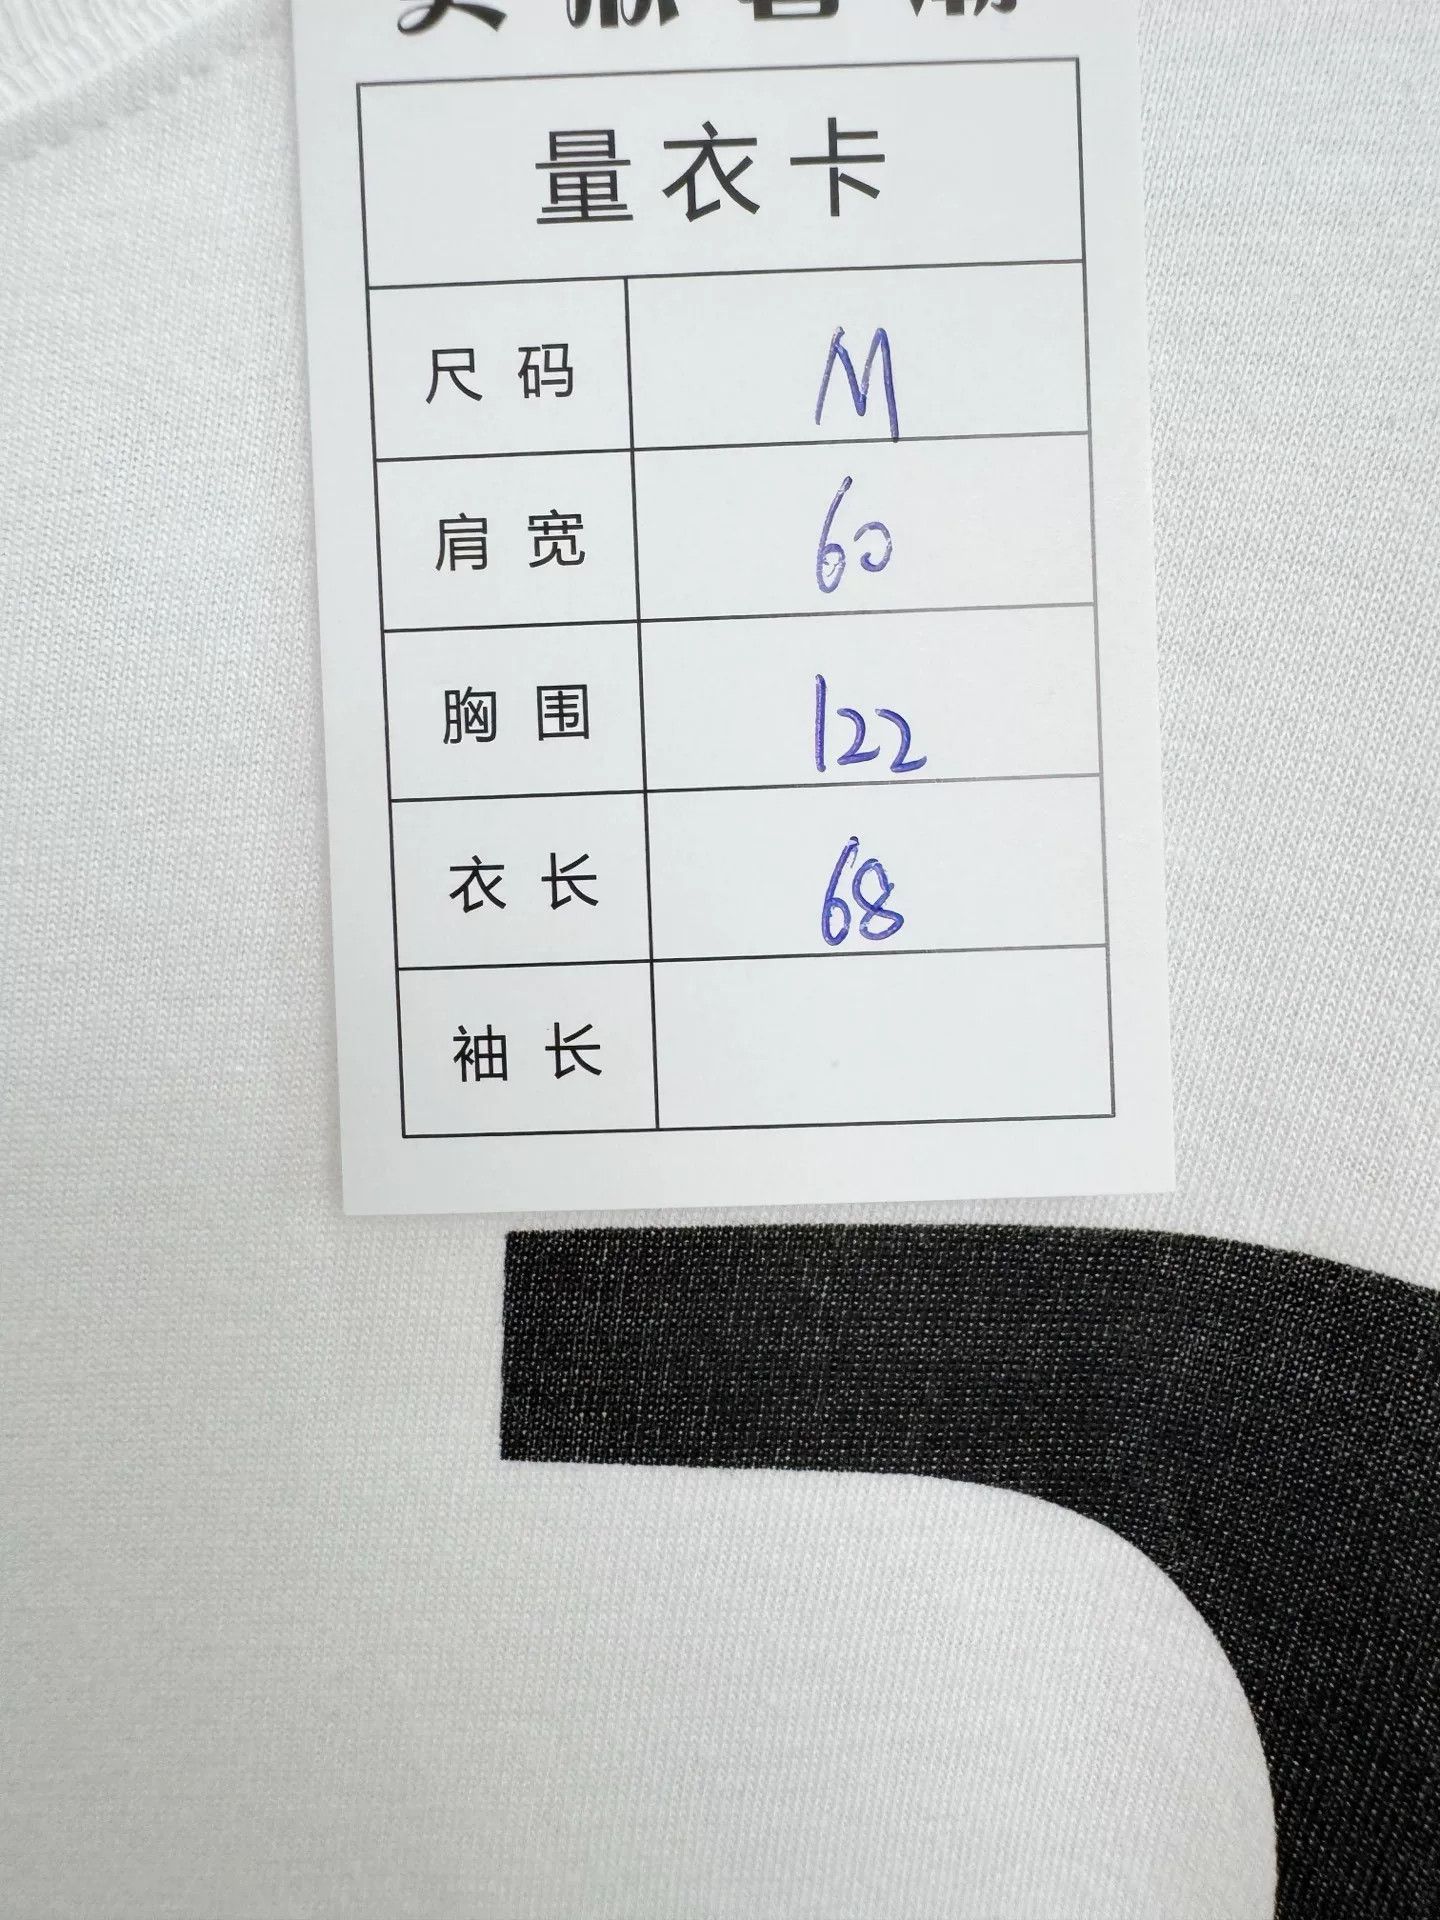 量衣卡
尺码 M
肩宽 60
胸围 122
衣长 68
袖长